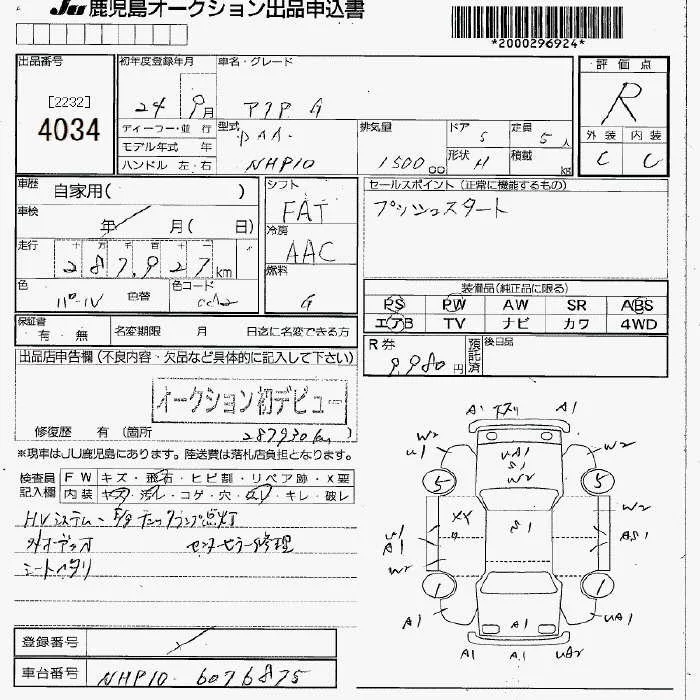 JU 鹿児島オークション出品申込書
*2000296924*
出品番号 初年度登録年月 車名・グレード 評価点
[2232]
4034
24 9月 アクア G R
ディーラー・並行 型式 DAA- 排気量 ドア 5 定員 5人 外装 内装
モデル年式 年
ハンドル 左・右 NHP10 1500cc 形状 H 積載 kg C C
車歴 自家用( ) シフト FAT セールスポイント(正常に機能するもの)
プッシュスタート
車検 年 月( 日) 冷房 AAC
走行 十 万 千 百 十 一
287,927km 燃料 G
色 パール 色替 色コード
装備品(純正品に限る)
PS PW AW SR ABS
エアB TV ナビ カワ 4WD
保証書 有・無 名変期限 月 日迄に名変できる方
R券 9980円 預託済 後日品
出品店申告欄(不良内容・欠品など具体的に記入して下さい)
オークション初デビュー
修復歴 有(箇所 287930km)
※現車はJU鹿児島にあります。陸送費は落札店負担となります。
検査員記入欄 FW キズ・飛石・ヒビ割・リペア跡・X要
内装 ヤケ・汚れ・コゲ・穴・キレ・破レ
HVシステム・チェックランプ点灯
外オーディオ センターピラー修理
シートヘタリ
A1 A1
W2 U1 UA1 S1 W2 W2
5 5
XY W2
U1 A1 S1 AS1
W2
1 1
A1 A1 UA1
A1 A1 UA2
登録番号
車台番号 NHP10-6076875